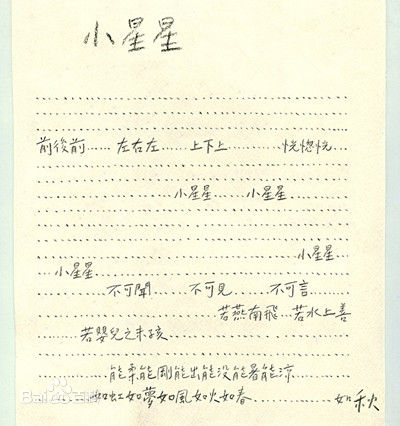 小星星
前後前......左右左......上下上............恍惚恍...
小星星......小星星
小星星
小星星
不可聞......不可見......不可言
若燕南飛...若水上善
若嬰兒之未孩
能柔能剛能出能沒能暑能涼
如虹如夢如風如火如春............如秋
Bai 百科